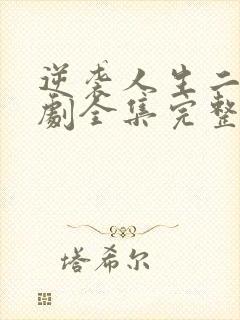 逆袭人生二
劇全集完整
塔希尔